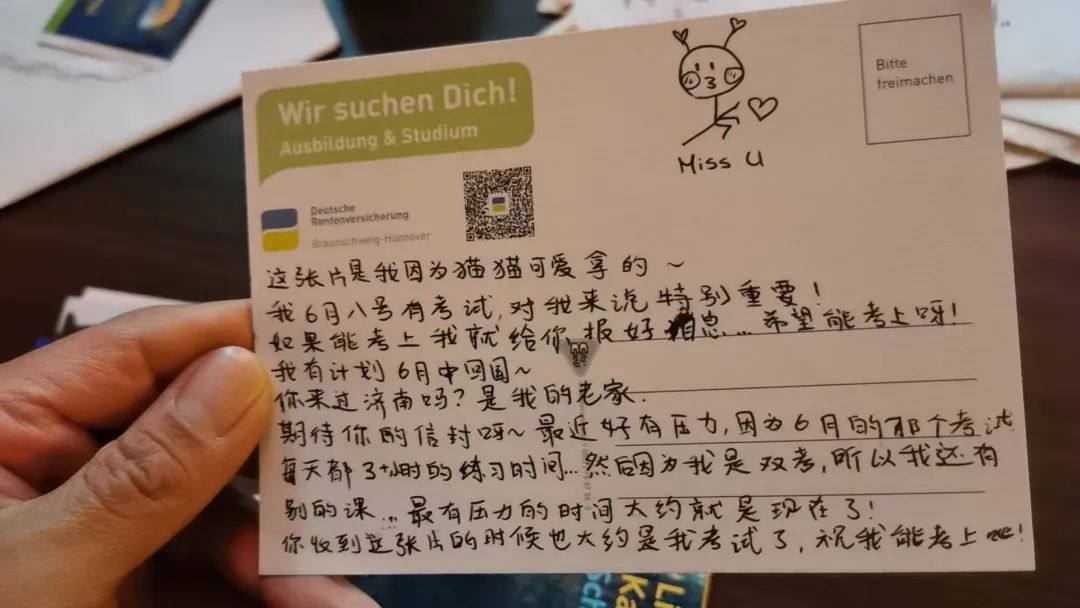 Wir suchen Dich!
Ausbildung & Studium
Miss U
Bitte
freimachen
Deutsche
Rentenversicherung
Braunschweig-Hannover
这张片是我因为猫猫可爱拿的~
我6月八号有考试,对我来说特别重要!
如果能考上我就给你报好消息...希望能考上呀!
我有计划6月中回国~
你来过济南吗?是我的老家.
期待你的信封呀~最近好有压力,因为6月的那个考试
每天都3+小时的练习时间...然后因为我是双考,所以我还有
别的课...最有压力的时间大约就是现在了!
你收到这张片的时候也大约是我考试了,祝我能考上吧!
Li
Ka
Sch